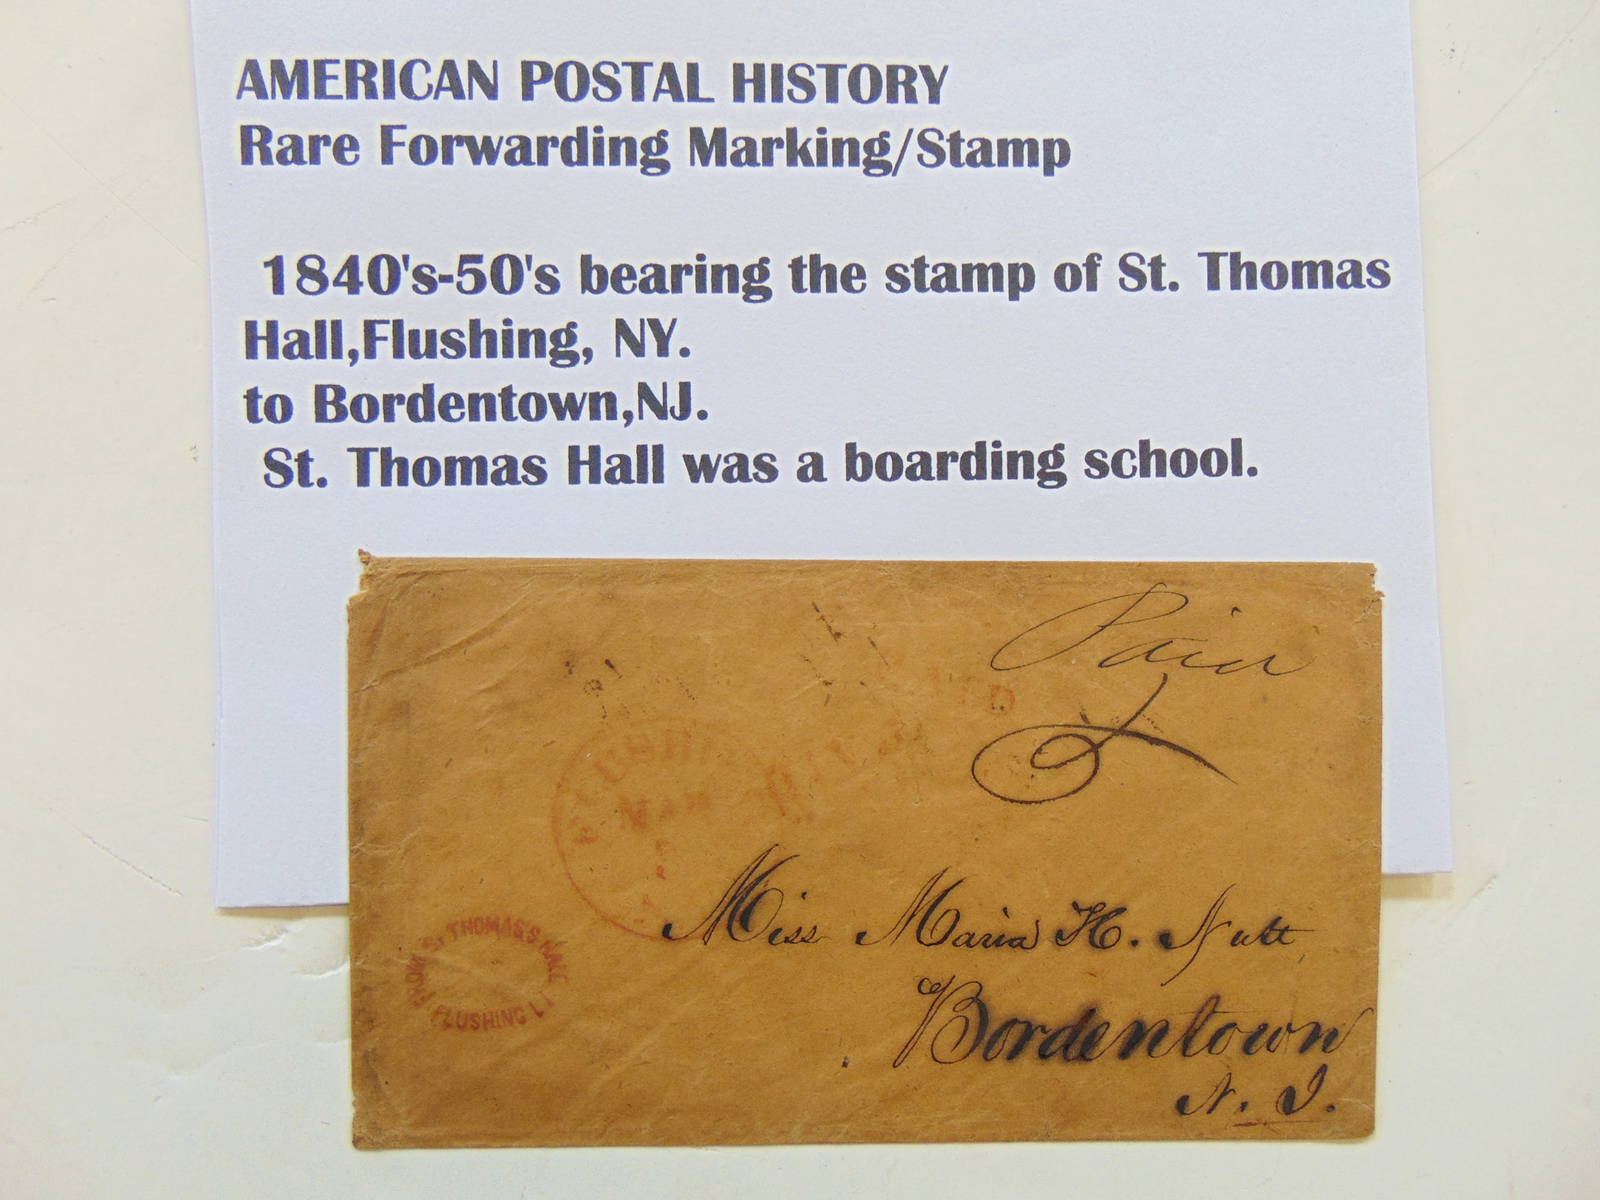 AMERICAN POSTAL HISTORY
Rare Forwarding Marking/Stamp
1840's-50's bearing the stamp of St. Thomas
Hall,Flushing, NY.
to Bordentown,NJ.
St. Thomas Hall was a boarding school.
Paid
FROM ST THOMAS'S HALL
FLUSHING L I
Miss Maria H. Nutt
Bordentown
N. J.